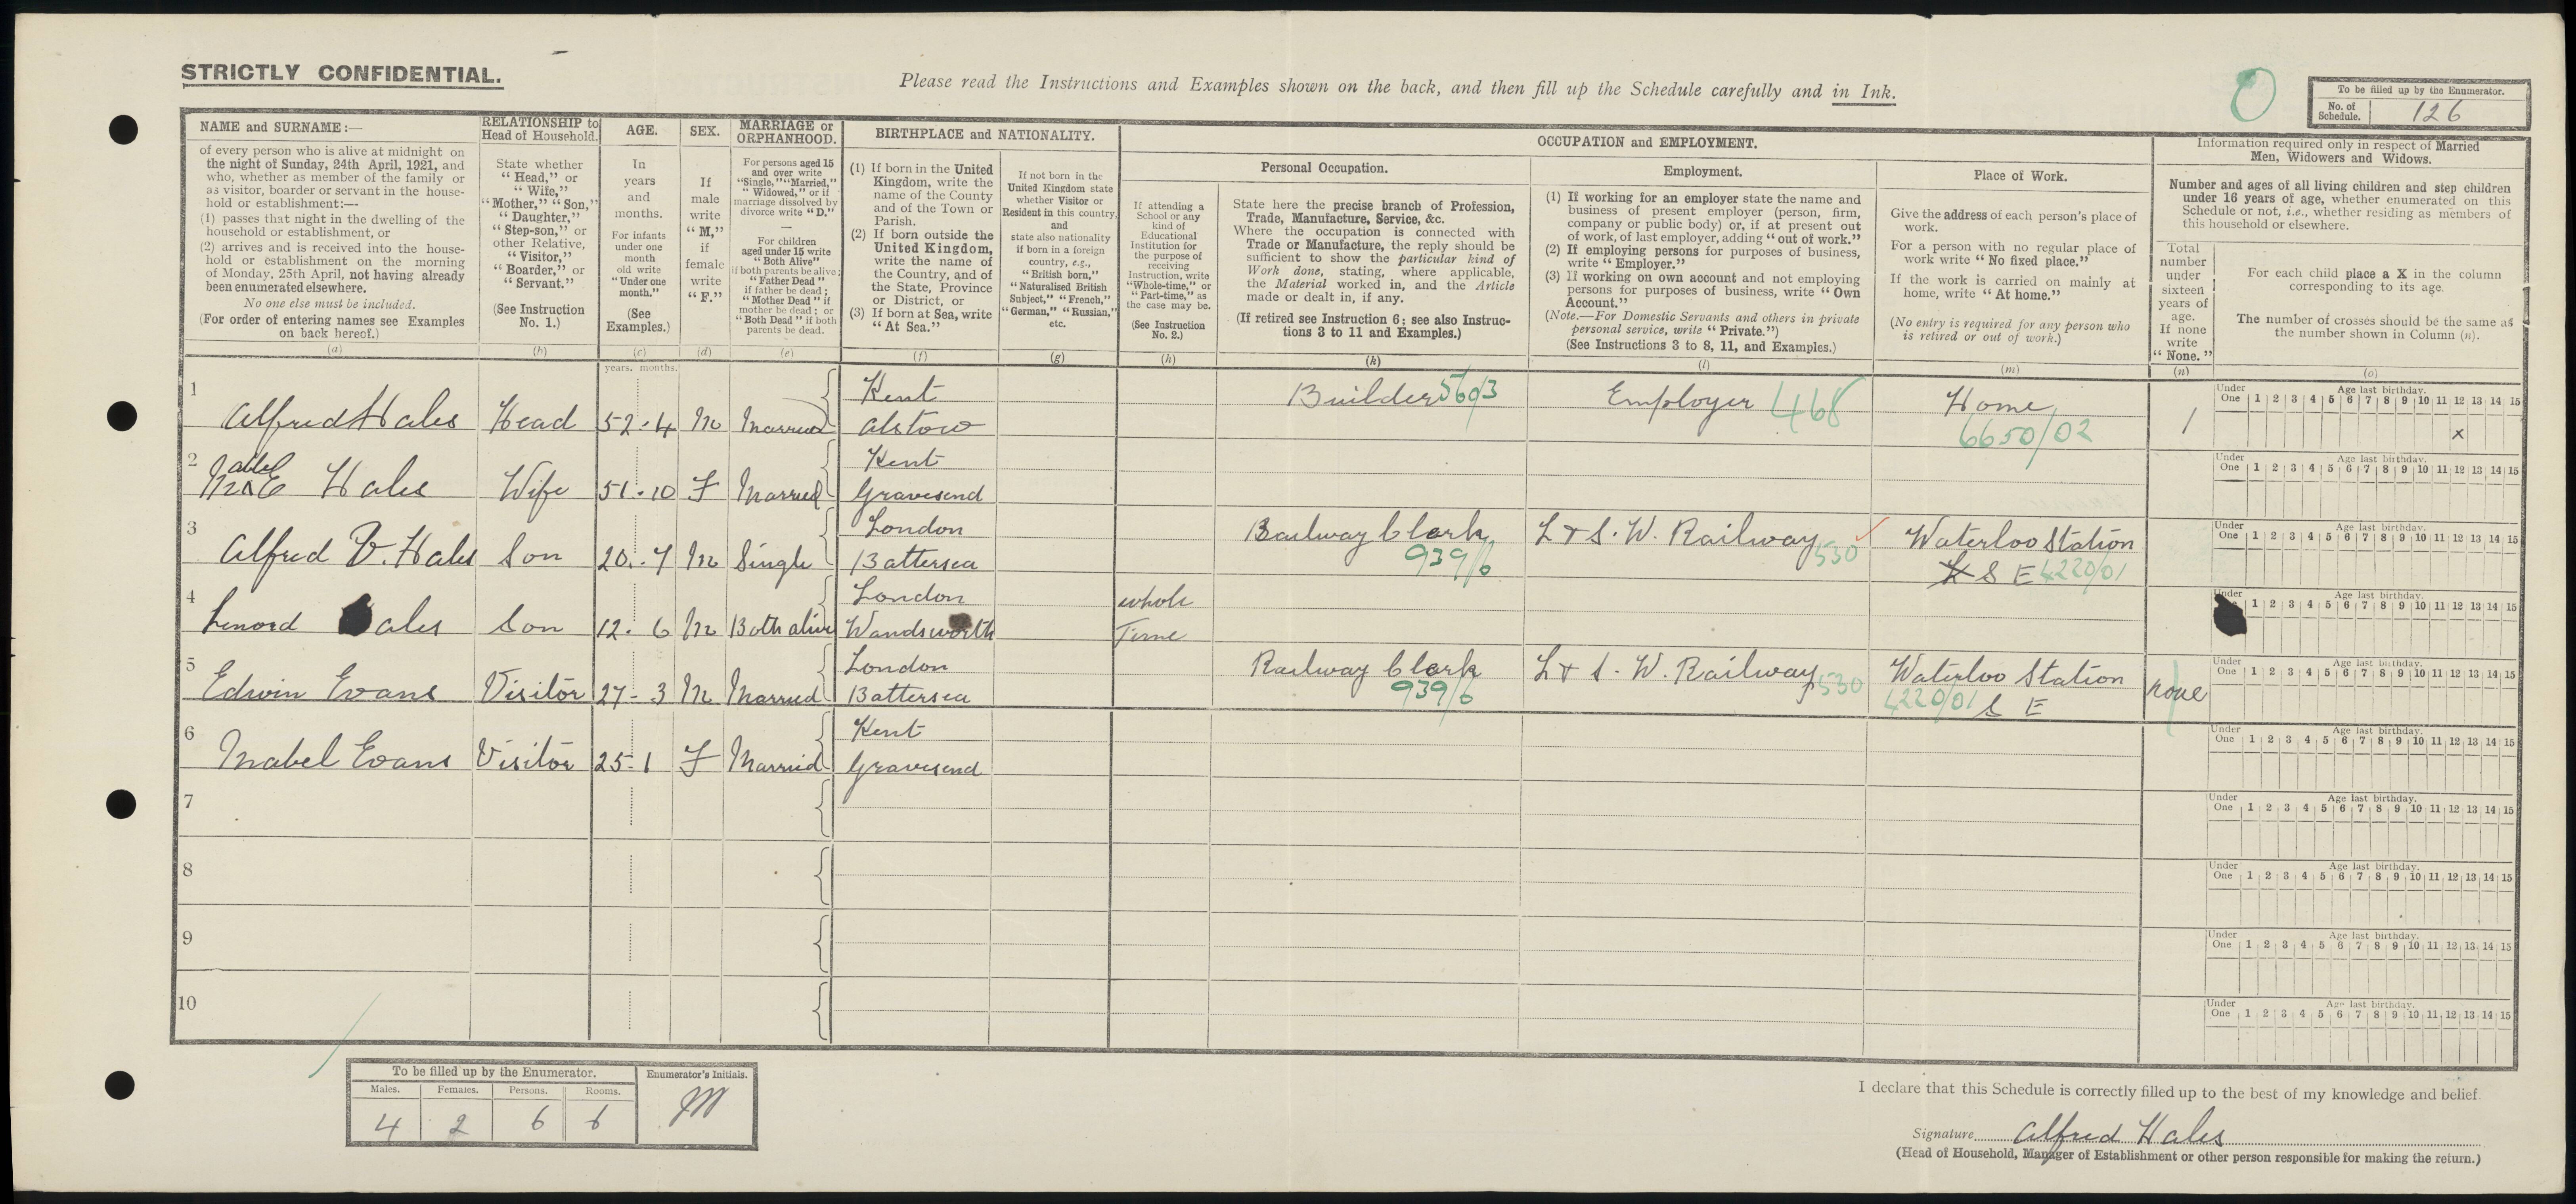 STRICTLY CONFIDENTIAL.
Please read the Instructions and Examples shown on the back, and then fill up the Schedule carefully and in Ink.
To be filled up by the Enumerator.
No. of Schedule. 126
NAME and SURNAME:—
of every person who is alive at midnight on
the night of Sunday, 24th April, 1921, and
who, whether as member of the family or
as visitor, boarder or servant in the house-
hold or establishment:—
(1) passes that night in the dwelling of the
household or establishment, or
(2) arrives and is received into the house-
hold or establishment on the morning
of Monday, 25th April, not having already
been enumerated elsewhere.
No one else must be included.
(For order of entering names see Examples
on back hereof.)
(a)
RELATIONSHIP to
Head of Household.
State whether
"Head," or
"Wife,"
"Mother," "Son,"
"Daughter,"
"Step-son," or
other Relative,
"Visitor,"
"Boarder," or
"Servant."
(See Instruction
No. 1.)
(b)
AGE.
In
years
and
months.
For infants
under one
month
old write
"Under one
month."
(See
Examples.)
(c)
years. months.
SEX.
If
male
write
"M,"
if
female
write
"F."
(d)
MARRIAGE or
ORPHANHOOD.
For persons aged 15
and over write
"Single," "Married,"
"Widowed," or if
marriage dissolved by
divorce write "D."
For children
aged under 15 write
"Both Alive"
if both parents be alive;
"Father Dead"
if father be dead;
"Mother Dead" if
mother be dead; or
"Both Dead" if both
parents be dead.
(e)
BIRTHPLACE and NATIONALITY.
(1) If born in the United
Kingdom, write the
name of the County
and of the Town or
Parish.
(2) If born outside the
United Kingdom,
write the name of
the Country, and of
the State, Province
or District, or
(3) If born at Sea, write
"At Sea."
(f)
If not born in the
United Kingdom state
whether Visitor or
Resident in this country,
and
state also nationality
if born in a foreign
country, e.g.,
"British born,"
"Naturalised British
Subject," "French,"
"German," "Russian,"
etc.
(g)
OCCUPATION and EMPLOYMENT.
If attending a
School or any
kind of
Educational
Institution for
the purpose of
receiving
Instruction, write
"Whole-time," or
"Part-time," as
the case may be.
(See Instruction
No. 2.)
(h)
Personal Occupation.
State here the precise branch of Profession,
Trade, Manufacture, Service, &c.
Where the occupation is connected with
Trade or Manufacture, the reply should be
sufficient to show the particular kind of
Work done, stating, where applicable,
the Material worked in, and the Article
made or dealt in, if any.
(If retired see Instruction 6; see also Instruc-
tions 3 to 11 and Examples.)
(k)
Employment.
(1) If working for an employer state the name and
business of present employer (person, firm,
company or public body) or, if at present out
of work, of last employer, adding "out of work."
(2) If employing persons for purposes of business,
write "Employer."
(3) If working on own account and not employing
persons for purposes of business, write "Own
Account."
(Note.—For Domestic Servants and others in private
personal service, write "Private.")
(See Instructions 3 to 8, 11, and Examples.)
(l)
Place of Work.
Give the address of each person's place of
work.
For a person with no regular place of
work write "No fixed place."
If the work is carried on mainly at
home, write "At home."
(No entry is required for any person who
is retired or out of work.)
(m)
Information required only in respect of Married
Men, Widowers and Widows.
Number and ages of all living children and step children
under 16 years of age, whether enumerated on this
Schedule or not, i.e., whether residing as members of
this household or elsewhere.
Total
number
under
sixteen
years of
age.
If none
write
"None."
(n)
For each child place a X in the column
corresponding to its age.
The number of crosses should be the same as
the number shown in Column (n).
(o)
1 Alfred Hales Head 52.4 M Married Kent Alstow Builder 560/3 Employer 468 Home 6650/02 1
Under One 1 2 3 4 5 6 7 8 9 10 11 12 13 14 15 Age last birthday.
x
2 Mabel E Hales Wife 51.10 F Married Kent Gravesend
Under One 1 2 3 4 5 6 7 8 9 10 11 12 13 14 15 Age last birthday.
3 Alfred V. Hales Son 20.7 M Single London Battersea Railway Clerk 939/6 L & S. W. Railway 530 Waterloo Station S E 4220/01
Under One 1 2 3 4 5 6 7 8 9 10 11 12 13 14 15 Age last birthday.
4 Lenord Hales Son 12.6 M Both alive London Wandsworth whole Time
Under 1 2 3 4 5 6 7 8 9 10 11 12 13 14 15 Age last birthday.
5 Edwin Evans Visitor 27-3 M Married London Battersea Railway Clerk 939/6 L & S. W. Railway 530 Waterloo Station 4220/01 S E none
Under One 1 2 3 4 5 6 7 8 9 10 11 12 13 14 15 Age last birthday.
6 Mabel Evans Visitor 25-1 F Married Kent Gravesend
Under One 1 2 3 4 5 6 7 8 9 10 11 12 13 14 15 Age last birthday.
7
Under One 1 2 3 4 5 6 7 8 9 10 11 12 13 14 15 Age last birthday.
8
Under One 1 2 3 4 5 6 7 8 9 10 11 12 13 14 15 Age last birthday.
9
Under One 1 2 3 4 5 6 7 8 9 10 11 12 13 14 15 Age last birthday.
10
Under One 1 2 3 4 5 6 7 8 9 10 11 12 13 14 15 Age last birthday.
To be filled up by the Enumerator.
Males. Females. Persons. Rooms.
4 2 6 6
Enumerator's Initials.
I declare that this Schedule is correctly filled up to the best of my knowledge and belief.
Signature Alfred Hales
(Head of Household, Manager of Establishment or other person responsible for making the return.)